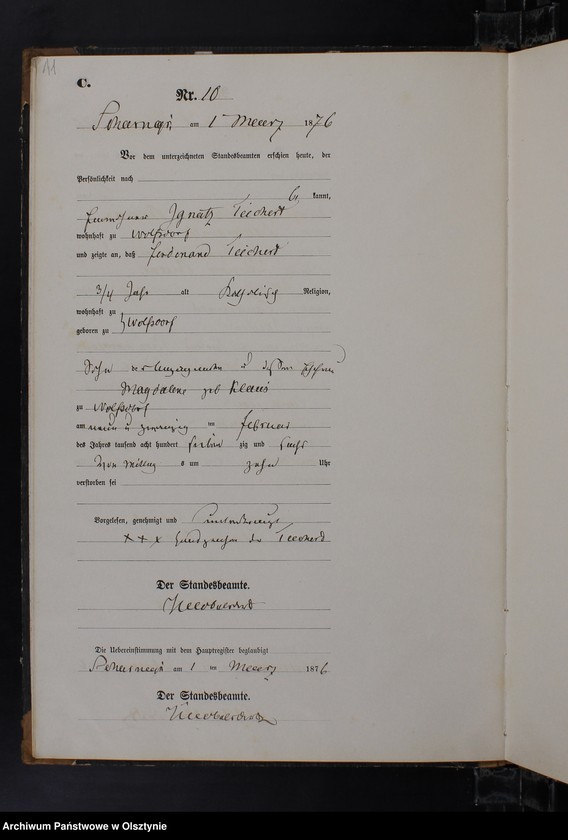 11
C.
Nr. 10
am 1 Maerz 1876
Vor dem unterzeichneten Standesbeamten erschien heute, der
Persönlichkeit nach
kannt,
Ignatz Teichert
wohnhaft zu Wolfsdorf
und zeigte an, daß Ferdinand Teichert
3/4 Jahr alt Katholisch Religion,
wohnhaft zu
geboren zu Wolfsdorf
Sohn des
Magdalena geb Klaus
zu Wolfsdorf
am neun u zwanzig ten Februar
des Jahres tausend acht hundert sieben zig und sechs
Vor mittag s um zehn Uhr
verstorben sei
Vorgelesen, genehmigt und
+ + + Handzeichen des Teichert
Der Standesbeamte.
Die Uebereinstimmung mit dem Hauptregister beglaubigt
am 1 ten Maerz 1876
Der Standesbeamte.
Archiwum Państwowe w Olsztynie